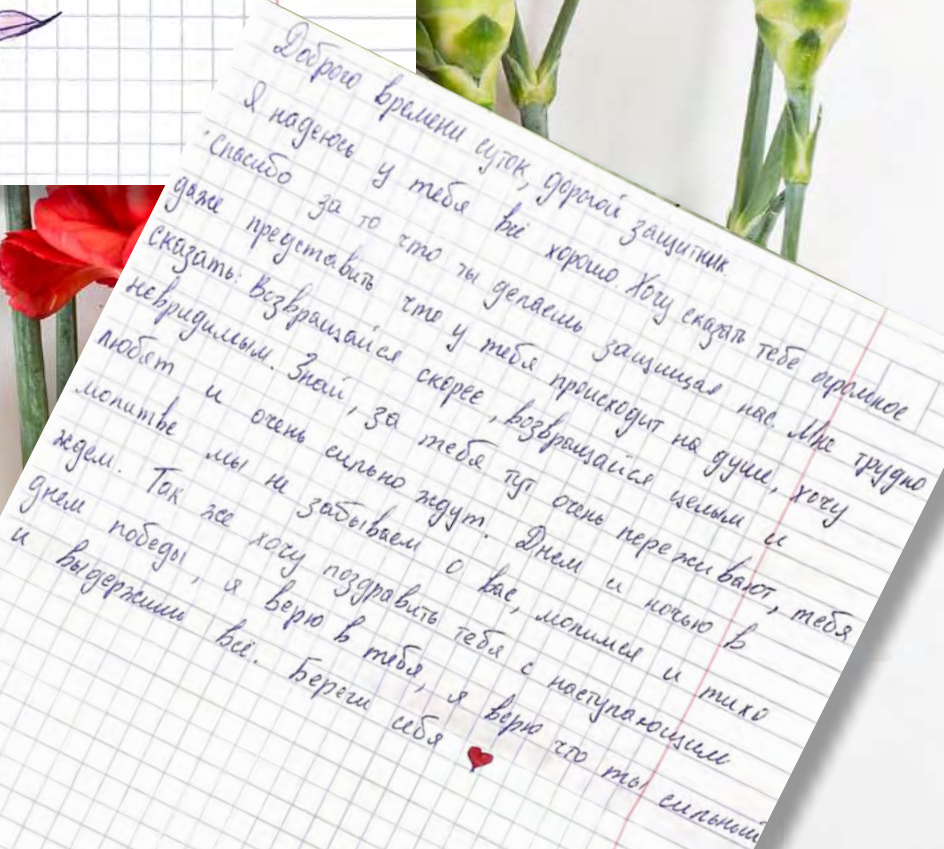 Доброго времени суток, дорогой защитник
Я надеюсь у тебя всё хорошо. Хочу сказать тебе огромное
спасибо за то что ты делаешь защищая нас. Мне трудно
даже представить что у тебя происходит на душе, хочу
сказать: Возвращайся скорее, возвращайся целым и
невридимым. Знай, за тебя тут очень переживают, тебя
любят и очень сильно ждут. Днем и ночью в
молитве мы не забываем о вас, молимся и тихо
ждем. Так же хочу поздравить тебя с наступающим
днем победы, я верю в тебя, я верю что ты сильный
и выдержишь всё. Береги себя